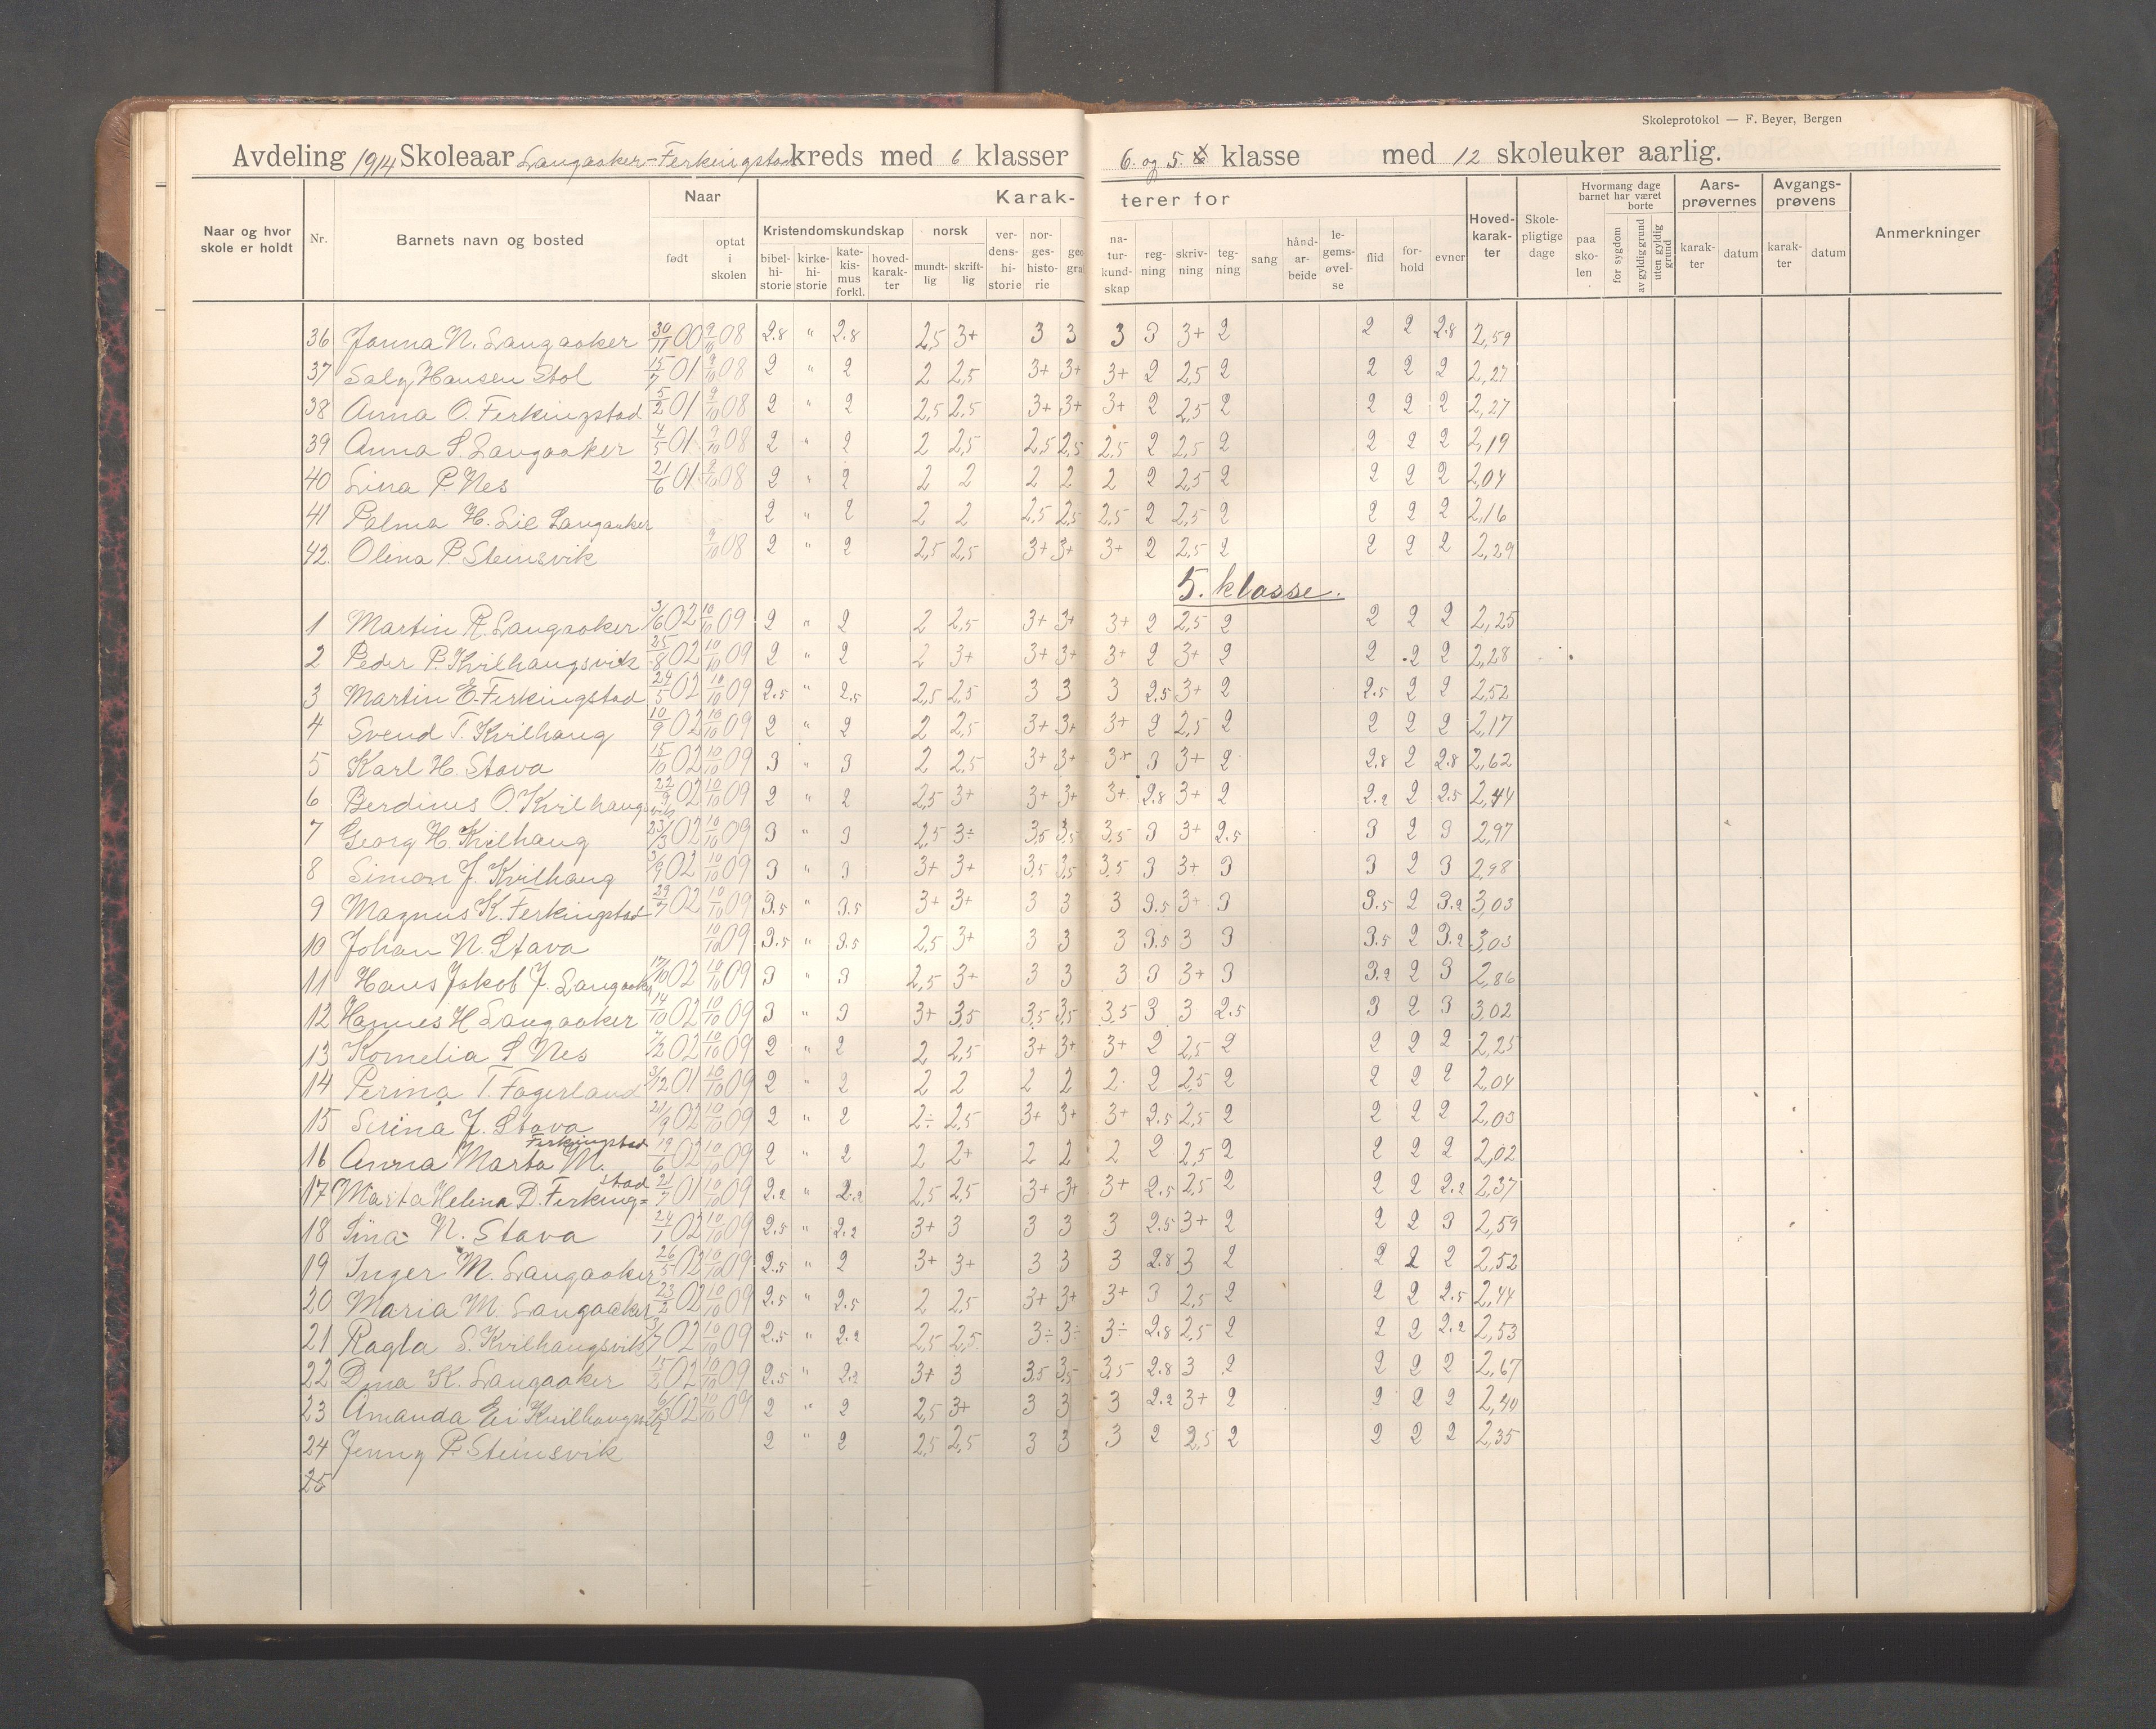 Skoleprotokol — F. Beyer, Bergen
Avdeling 1914 Skoleaar Langaaker-Ferkingstad kreds med 6 klasser 6. og 5. klasse med 12 skoleuker aarlig.
Naar og hvor skole er holdt Nr. Barnets navn og bosted Naar født optat i skolen Karakterer for Kristendomskundskap bibelhistorie kirkehistorie katekismus forkl. hovedkarakter norsk mundtlig skriftlig verdenshistorie norgeshistorie geogra naturkundskap regning skrivning tegning sang håndarbeide legemsøvelse flid forhold evner Hovedkarakter Skolepligtige dage Hvormang dage barnet har været paa skolen borte for sygdom av gyldig grund uten gyldig grund Aarsprøvernes karakter datum Avgangsprøvens karakter datum Anmerkninger
36 Janna N. Langaaker 30/11 00 9/10 08 2.8 " 2.8 2,5 3+ 3 3 3 3 3+ 2 2 2 2.8 2,59
37 Saly Hansen Stol 15/7 01 9/10 08 2 " 2 2 2,5 3+ 3+ 3+ 2 2,5 2 2 2 2 2,27
38 Anna O. Ferkingstad 5/2 01 9/10 08 2 " 2 2,5 2,5 3+ 3+ 3+ 2 2,5 2 2 2 2 2,27
39 Anna S. Langaaker 4/5 01 9/10 08 2 " 2 2 2,5 2,5 2,5 2,5 2 2,5 2 2 2 2 2,19
40 Lina P. Nes 21/6 01 9/10 08 2 " 2 2 2 2 2 2 2 2,5 2 2 2 2 2,04
41 Palma H. Lie Langaaker 2 " 2 2 2 2,5 2,5 2,5 2 2,5 2 2 2 2 2,16
42. Olena P. Steinsvik 9/10 08 2 " 2 2,5 2,5 3+ 3+ 3+ 2 2,5 2 2 2 2 2,29
5. klasse.
1 Martin R. Langaaker 3/6 02 10/10 09 2 " 2 2 2,5 3+ 3+ 3+ 2 2,5 2 2 2 2 2,25
2 Peder P. Kvilhaugsvik 25/8 02 10/10 09 2 " 2 2 3+ 3+ 3+ 3+ 2 3+ 2 2 2 2 2,28
3 Martin E. Ferkingstad 24/5 02 10/10 09 2.5 " 2.5 2,5 2,5 3 3 3 2.5 3+ 2 2.5 2 2 2,52
4 Svend T. Kvilhaug 10/9 02 10/10 09 2 " 2 2 2,5 3+ 3+ 3+ 2 2,5 2 2 2 2 2,17
5 Karl H. Stava 15/10 02 10/10 09 3 " 3 2 2,5 3+ 3+ 3+ 3 3+ 2 2.8 2 2.8 2,62
6 Berdines O. Kvilhaugsvik 22/9 02 10/10 09 2 " 2 2,5 3+ 3+ 3+ 3+ 2.8 3+ 2 2.2 2 2.5 2,44
7 Georg H. Kvilhaug 23/3 02 10/10 09 3 " 3 2,5 3÷ 3,5 3,5 3,5 3 3+ 2.5 3 2 3 2,97
8 Simon J. Kvilhaug 3/9 02 10/10 09 3 " 3 3+ 3+ 3,5 3,5 3,5 3 3+ 3 3 2 3 2,98
9 Magnus K. Ferkingstad 29/7 02 10/10 09 3.5 " 3.5 3+ 3+ 3 3 3 3.5 3+ 3 3.5 2 3.2 3,03
10 Johan N. Stava 10/10 09 3.5 " 3.5 2,5 3+ 3 3 3 3.5 3 3 3.5 2 3.2 3,03
11 Hans Jakob J. Langaaker 17/10 02 10/10 09 3 " 3 2,5 3+ 3 3 3 3 3+ 3 3.2 2 3 2,86
12 Hannes H Langaaker 14/10 02 10/10 09 3 " 3 3+ 3,5 3,5 3,5 3,5 3 3 2.5 3 2 3 3,02
13 Kornelia S Nes 7/2 02 10/10 09 2 " 2 2 2,5 3+ 3+ 3+ 2 2,5 2 2 2 2 2,25
14 Perina T. Fagerland 3/12 01 10/10 09 2 " 2 2 2 2 2 2 2 2,5 2 2 2 2 2,04
15 Serina J. Stava 21/9 02 10/10 09 2 " 2 2÷ 2,5 3+ 3+ 3+ 2.5 2,5 2 2 2 2 2,03
16 Anna Marta M. Ferkingstad 19/6 02 10/10 09 2 " 2 2 2+ 2 2 2 2 2,5 2 2 2 2 2,02
17 Marta Helena D. Ferkingstad 21/7 01 10/10 09 2.2 " 2.2 2,5 2,5 3+ 3+ 3+ 2.5 2,5 2 2 2 2.2 2,37
18 Sina N. Stava 24/1 02 10/10 09 2.5 " 2.2 3+ 3 3 3 3 2.5 3+ 2 2 2 3 2,59
19 Inger M. Langaaker 26/5 02 10/10 09 2.5 " 2 3+ 3+ 3 3 3 2.8 3 2 2 2 2 2,52
20 Maria M. Langaaker 23/2 02 10/10 09 2.5 " 2.5 2 2,5 3+ 3+ 3+ 3 2,5 2 2 2 2.5 2,44
21 Ragla S. Kvilhaugsvik 3/7 02 10/10 09 2.5 " 2.2 2,5 2,5 3÷ 3÷ 3÷ 2.8 2,5 2 2 2 2.2 2,53
22 Dina K. Langaaker 15/2 02 10/10 09 2.5 " 2.2 3+ 3 3,5 3,5 3,5 2.8 3 2 2 2 2 2,67
23 Amanda Ei Kvilhaugsvik 6/3 02 10/10 09 2 " 2 2,5 3+ 3 3 3 2.2 3+ 2 2 2 2 2,40
24 Jenny P. Steinsvik 2 " 2 2,5 2,5 3 3 3 2 2,5 2 2 2 2 2,35
25